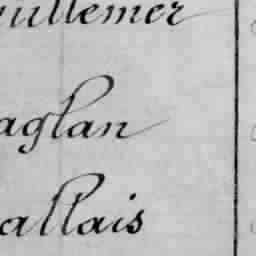 uillemer
aglan
allais